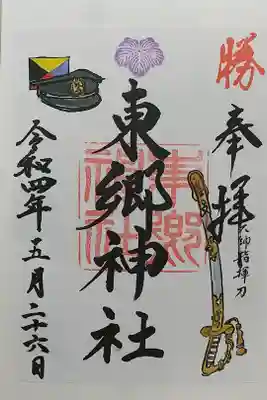 勝
奉拝
元帥指揮刀
東郷神社
東郷神社
令和四年五月二十六日